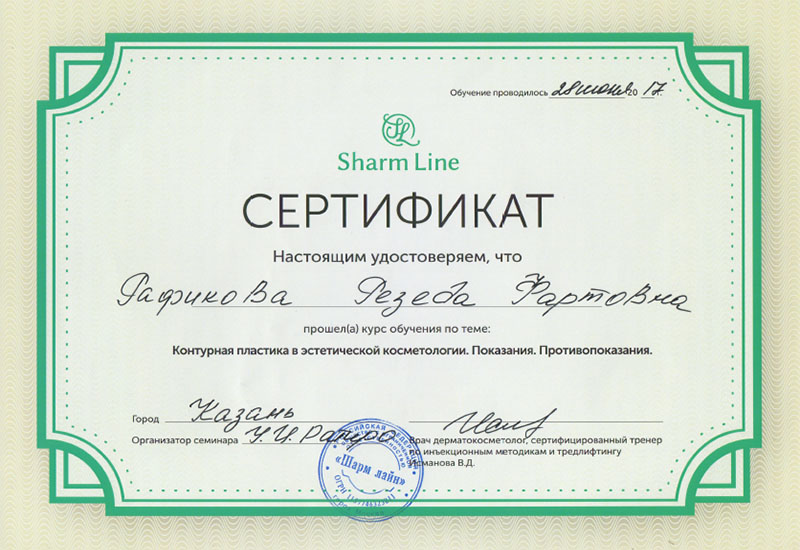 Обучение проводилось 28 июня 2017г.
Sharm Line
СЕРТИФИКАТ
Настоящим удостоверяем, что
Рафикова Резеба Фартовна
прошел(а) курс обучения по теме:
Контурная пластика в эстетической косметологии. Показания. Противопоказания.
Город Казань
Организатор семинара
Врач дерматокосметолог, сертифицированный тренер
по инъекционным методикам и тредлифтингу
Исманова В.Д.
«Шарм лайн»